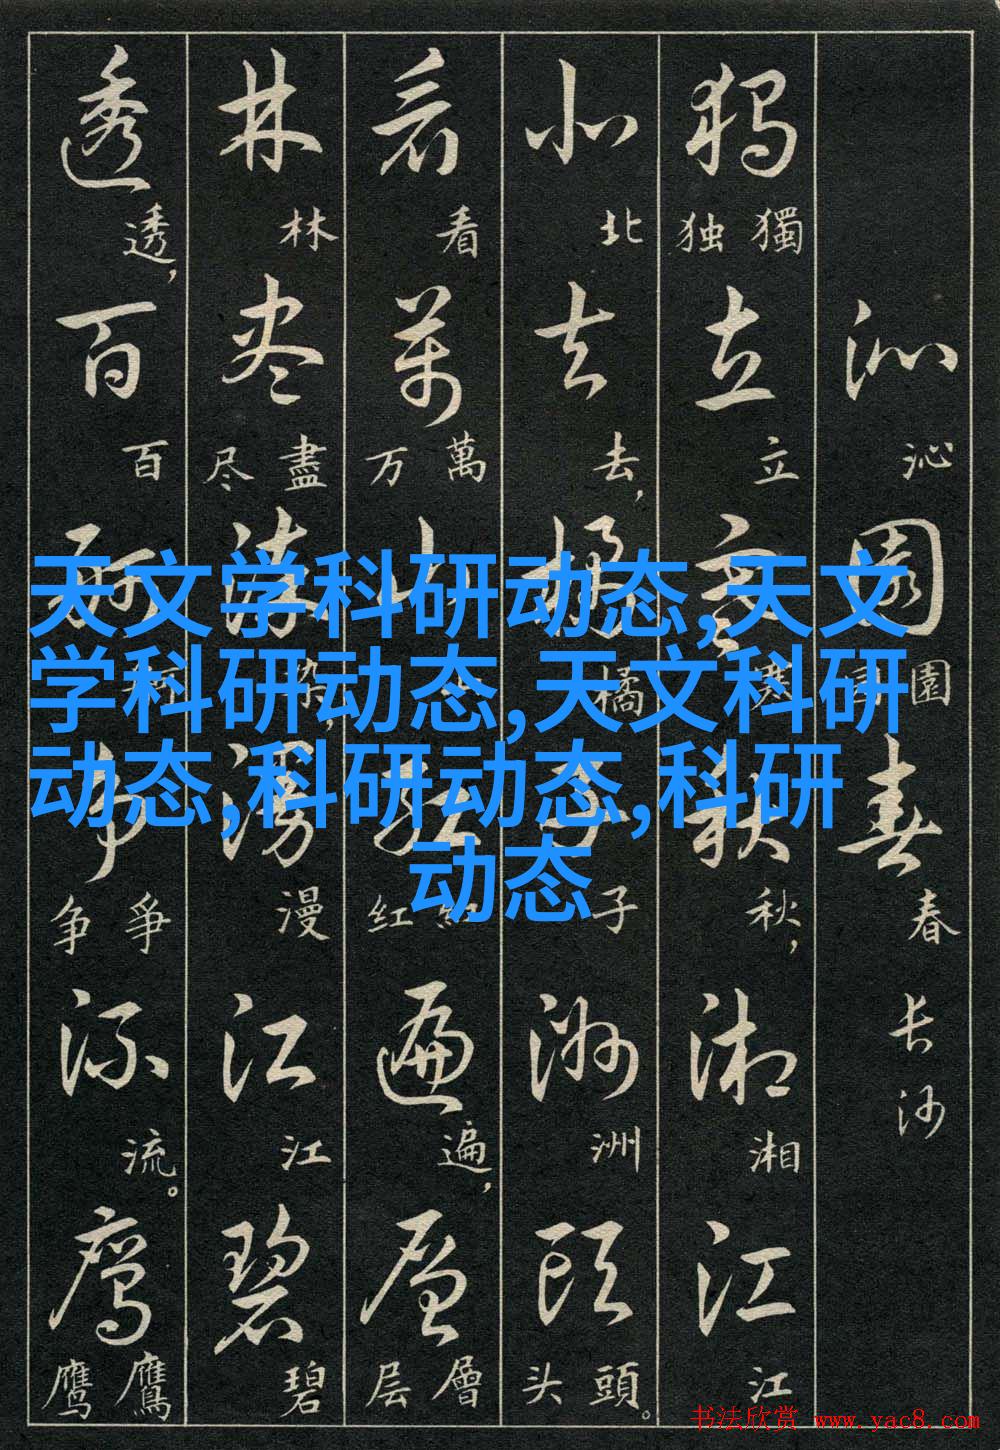 沁園春
沁 園 春 长沙
獨立寒秋湘江
獨独 立 秋， 湘 江
北去橘子洲頭
北 去， 橘 子 洲 頭头。
看萬山紅遍層
看 萬万 红 遍， 層层
林尽染漫江碧
林 盡尽 漫 江 碧
透百舸争流鹰
透， 百 爭争 流。 鷹鹰
天文学科研动态,天文
学科研动态,天文科研
动态,科研动态,科研
动态
书法欣赏 www.yac8.com